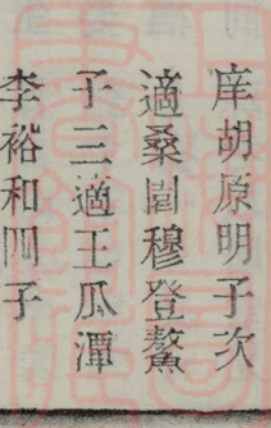 庠胡原明子次
適桑園穆登鰲
子三適王瓜潭
李裕和四子